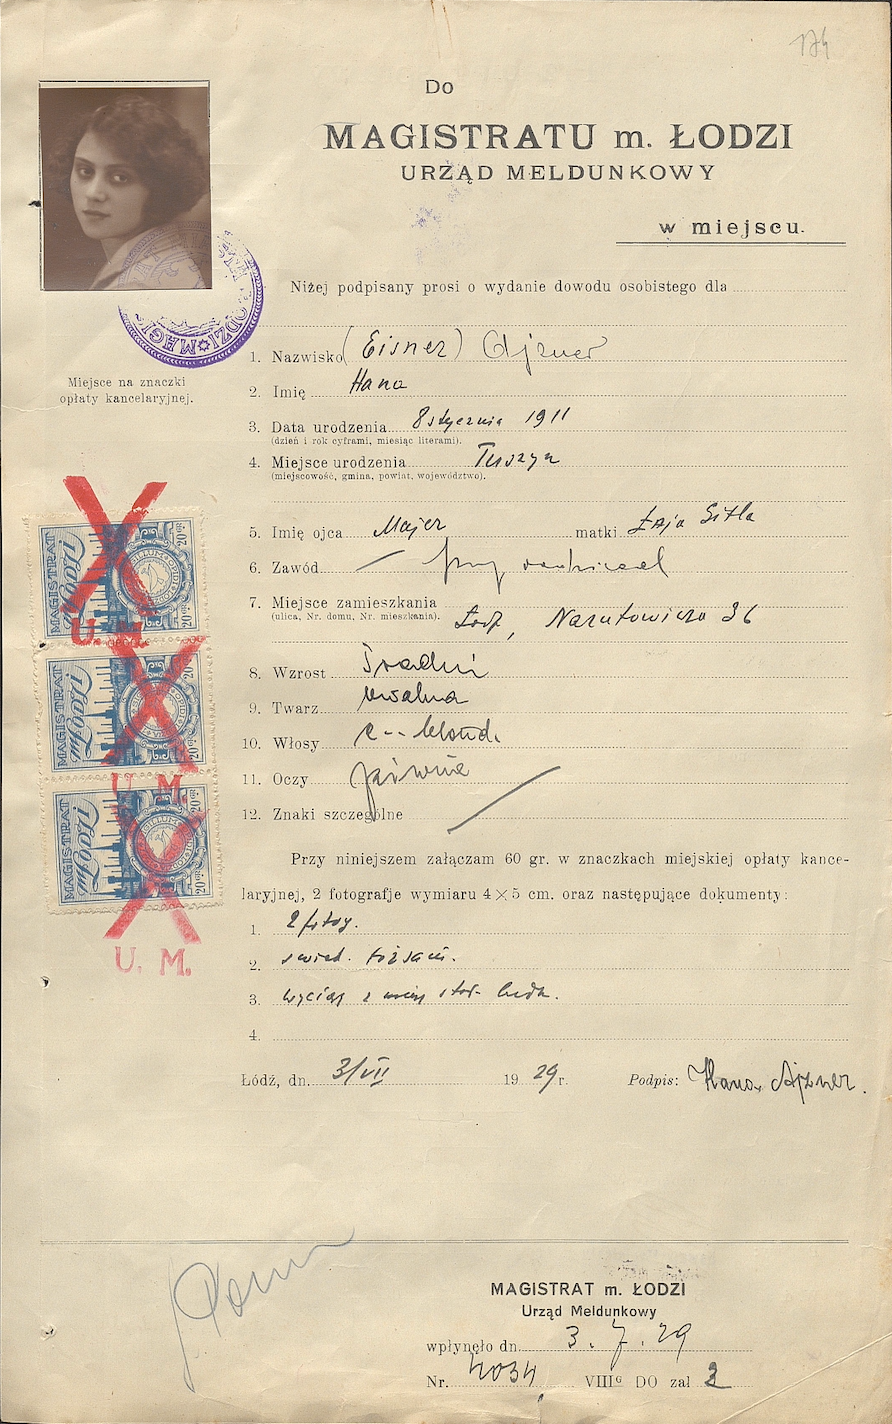 174
Do
MAGISTRATU m. ŁODZI
URZĄD MELDUNKOWY
w miejscu.
Niżej podpisany prosi o wydanie dowodu osobistego dla
1. Nazwisko (Eisner) Ajzner
2. Imię Hana
3. Data urodzenia 8 stycznia 1911
(dzień i rok cyframi, miesiąc literami).
4. Miejsce urodzenia Tuszyn
(miejscowość, gmina, powiat, województwo).
5. Imię ojca Majer matki Łaja Gitla
6. Zawód przy
7. Miejsce zamieszkania
(ulica, Nr. domu, Nr. mieszkania). Łódź, Narutowicza 36
8. Wzrost średni
9. Twarz owalna
10. Włosy c-blond.
11. Oczy piwne
12. Znaki szczególne
Miejsce na znaczki
opłaty kancelaryjnej.
MAGISTRAT
20 gr
U. M.
MAGISTRAT
20 gr
U. M.
MAGISTRAT
20 gr
U. M.
Przy niniejszem załączam 60 gr. w znaczkach miejskiej opłaty kance-
laryjnej, 2 fotografje wymiaru 4×5 cm. oraz następujące dokumenty:
1. 2 fotogr.
2. świad. tożsam.
3. wyciąg z ludn.
4.
Łódź, dn. 3/VII 1929 r. Podpis: Hana Ajzner.
MAGISTRAT m. ŁODZI
Urząd Meldunkowy
wpłynęło dn. 3. 7. 29
Nr. 4034 VIII G DO zał 2